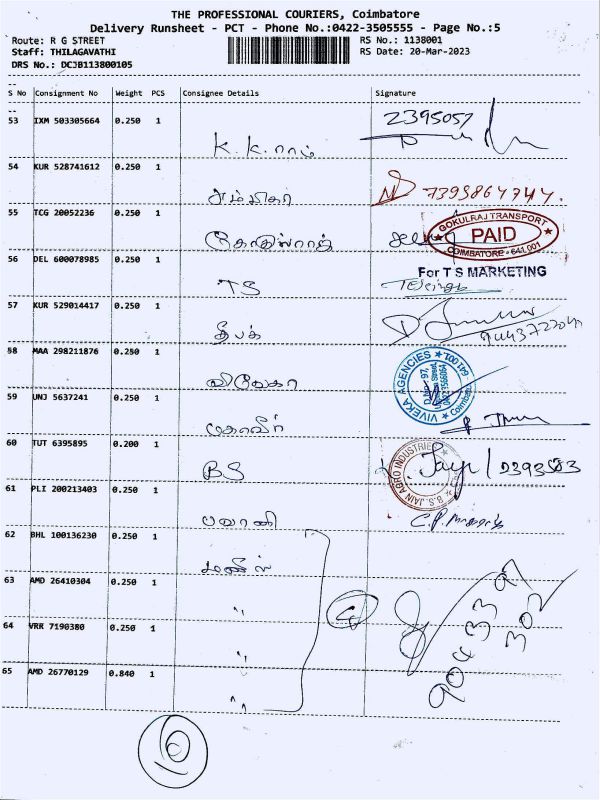 THE PROFESSIONAL COURIERS, Coimbatore
Delivery Runsheet - PCT - Phone No.:0422-3505555 - Page No.:5
Route: R G STREET
RS No.: 1138001
Staff: THILAGAVATHI
RS Date: 20-Mar-2023
DRS No.: DCJB113800105
S No Consignment No Weight PCS Consignee Details Signature
53 IXM 503305664 0.250 1
2395057
K.K.ராம்
54 KUR 528741612 0.250 1
7395864744.
55 TCG 20052236 0.250 1
GOKULRAJ TRANSPORT
PAID
COIMBATORE - 641 001
கோகுல்ராஜ்
56 DEL 600078985 0.250 1
For T S MARKETING
TS
57 KUR 529014417 0.250 1
தீபக்
58 MAA 298211876 0.250 1
VIVEKA AGENCIES
விவேகா
59 UNJ 5637241 0.250 1
மகாவீர்
60 TUT 6395895 0.200 1
B.S. JAIN AGRO INDUSTRIES
BS
61 PLI 200213403 0.250 1
பழனி
62 BHL 100136230 0.250 1
63 AMD 26410304 0.250 1
"
4
64 VRR 7190380 0.250 1
"
90433 97
302
65 AMD 26770129 0.840 1
"